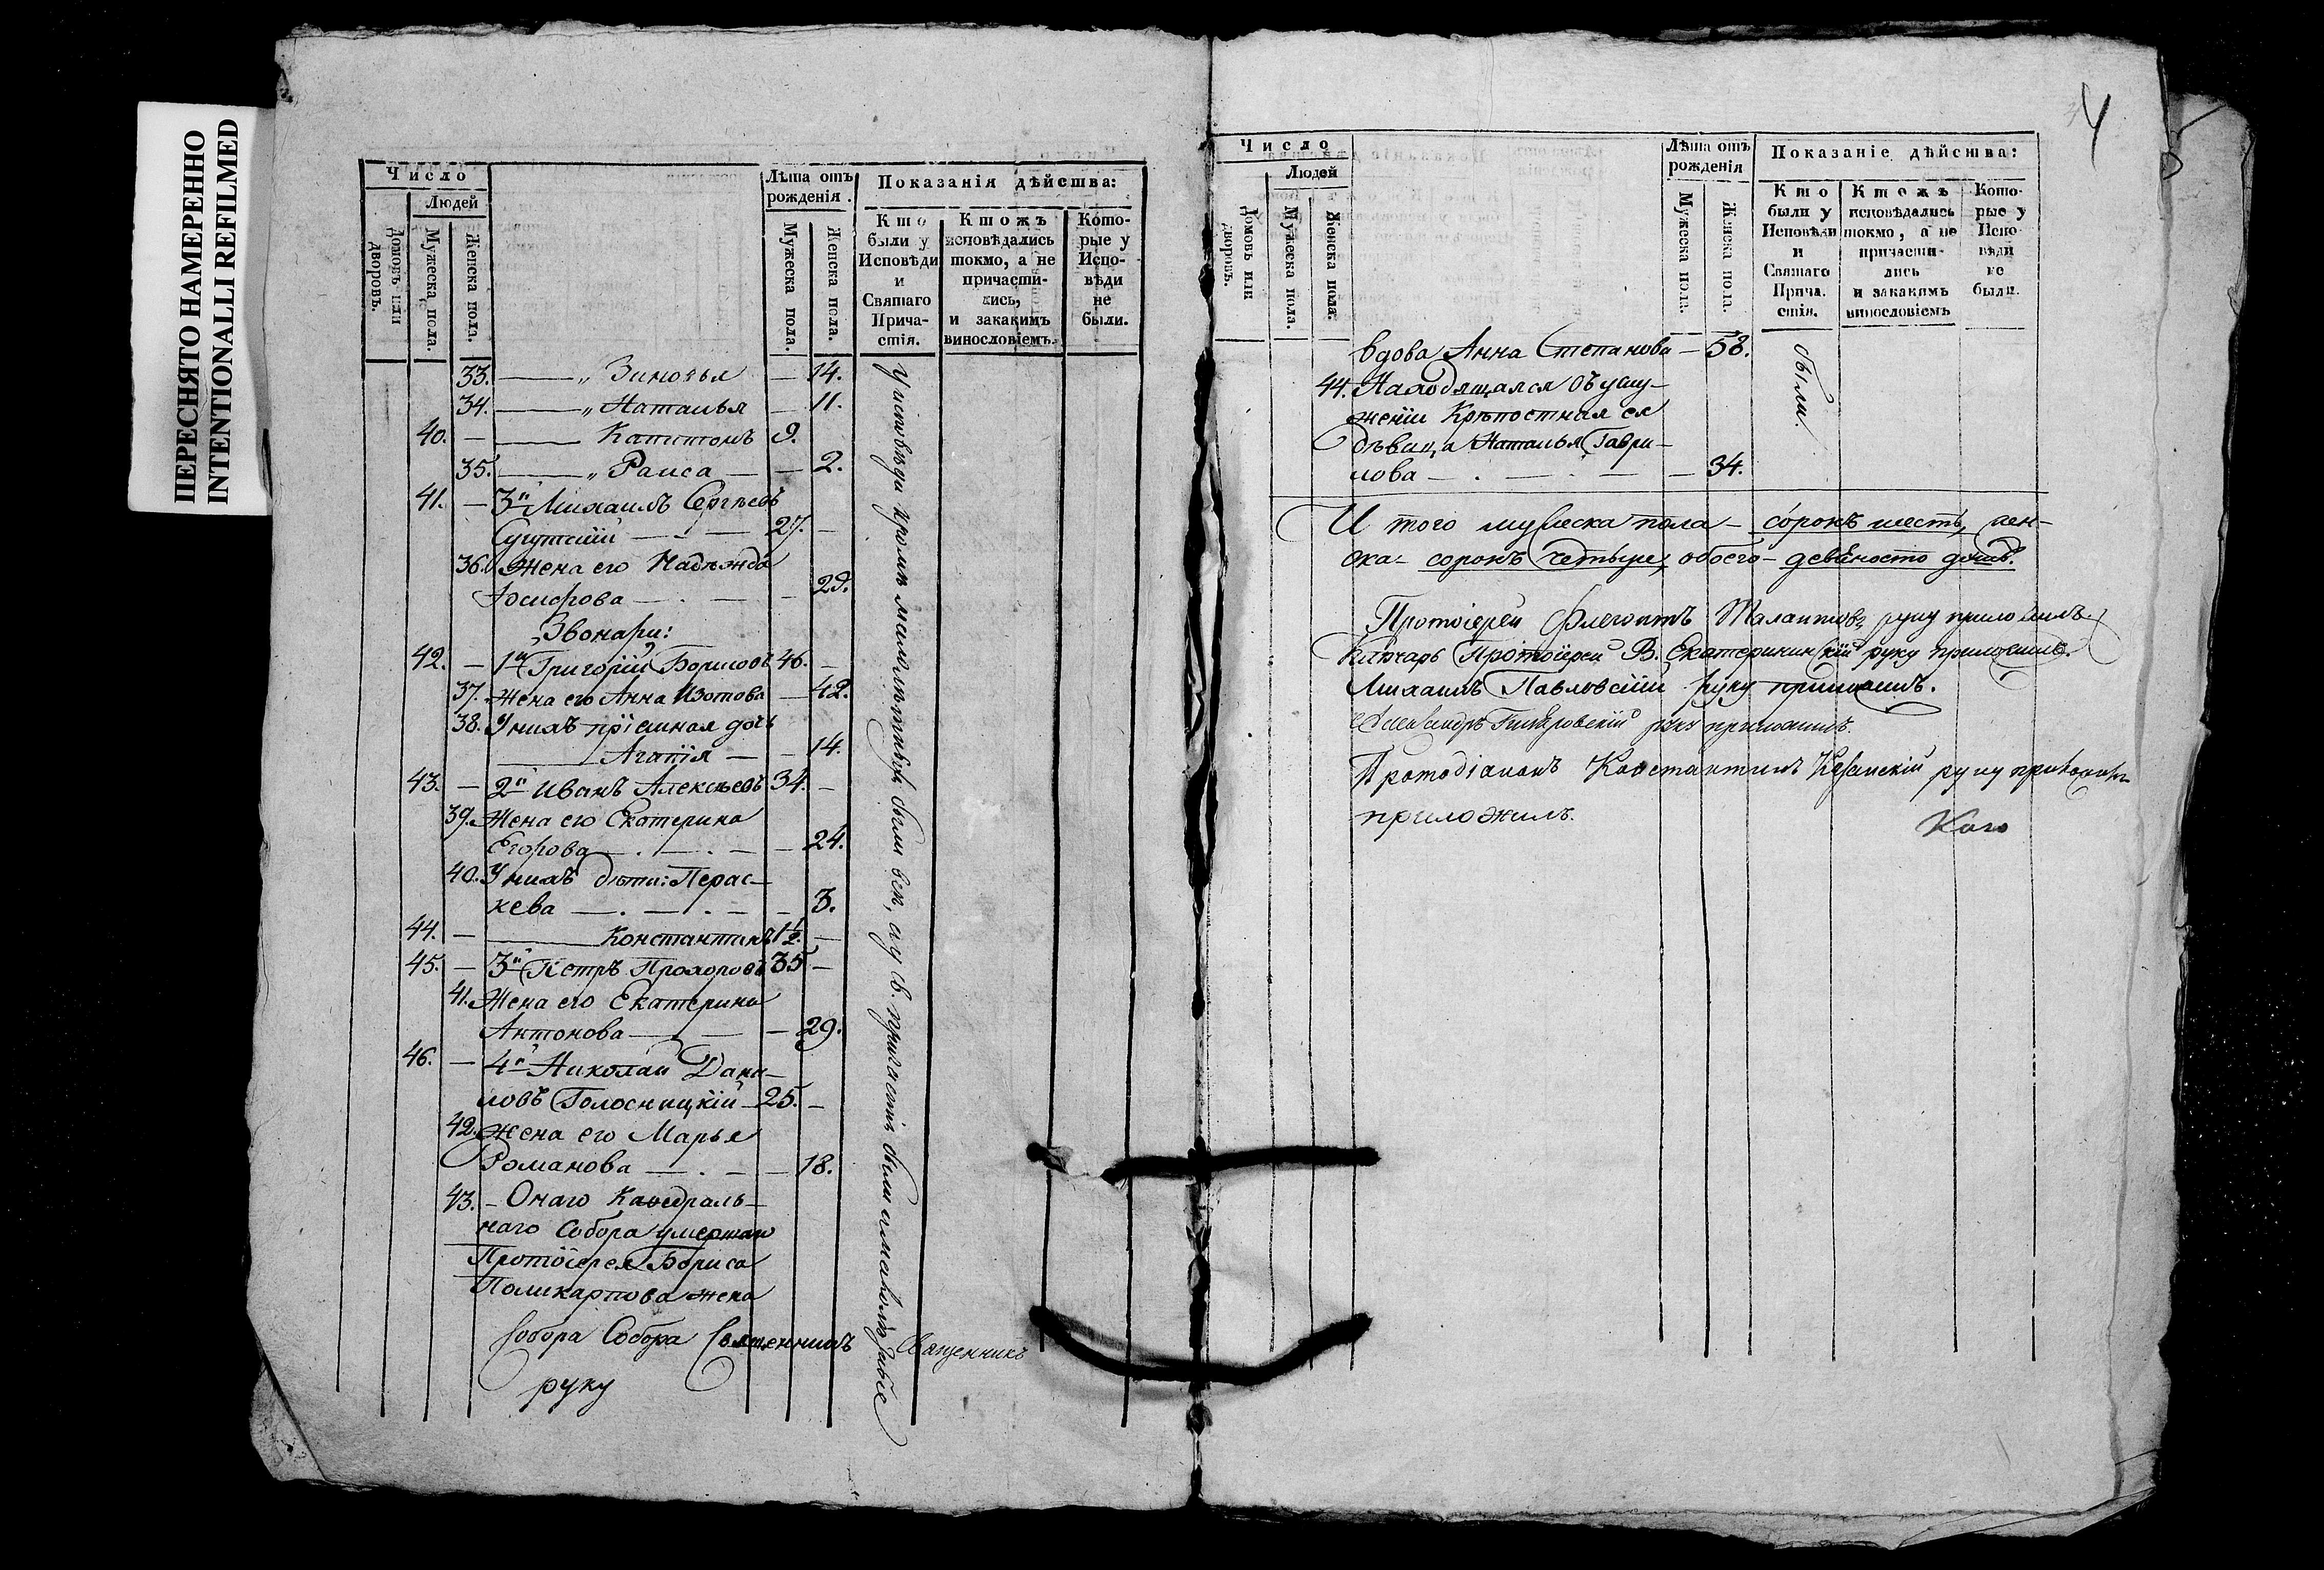 ПЕРЕСНЯТО НАМЕРЕННО
INTENTIONALLI REFILMED
Число
Людей
Домовъ или дворовъ.
Мужеска пола.
Женска пола.
Лѣта отъ рожденія.
Мужеска пола.
Женска пола.
Показанія дѣйства:
Кто были у Исповѣди и Святаго Причастія.
Ктожъ исповѣдались токмо, а не причастились, и закакимъ винословіемъ.
Которые у Исповѣди не были.
33. — „ Зиновья — 14.
34. — „ Наталья — 11.
40. — — Капитонъ 9.
35. — „ Раиса — — 2.
41. — 3й Михаилъ Сергѣевъ
— — 27. —
36. Жена его Надежда
— 29.
Звонари:
42. — 1й Григорій Борисовъ 46. —
37. Жена его Анна Изотова — 42.
38. У нихъ пріемная дочь
Агапія — — 14.
43. — 2й Иванъ Алексѣевъ 34. —
39. Жена его Екатерина
Егорова — . — . — — 24.
40. У нихъ дѣти: Парас-
кева — . — . — — 3.
44. — — Константинъ 1½. —
45. — 3й Петръ Прохоровъ 35 —
41. Жена его Екатерина
Антонова — — — 29.
46. — 4й Николай Дани-
ловъ Голосницкій — 25. —
42. Жена его Марья
Романова — . — — 18.
43. — Онаго Каѳедраль-
наго Собора умершаго
Протоіерея Бориса
Поликарпова жена
Собора Собора Священникъ Священникъ
руку
У исповѣди кромѣ малолѣтныхъ были всѣ, а у св. причастія были и малолѣтные
4
Число
Людей
Домовъ или дворовъ.
Мужеска пола.
Женска пола.
Лѣта отъ рожденія
Мужеска пола.
Женска пола.
Показаніе дѣйства:
Кто были у Исповѣди и Святаго Причастія.
Ктожъ исповѣдались токмо, а не причастились и закакимъ винословіемъ
Которые у Исповѣди не были.
вдова Анна Степанова — 58.
были.
44. Находящаяся въ услу-
женіи Крѣпостная ея
дѣвица Наталья Гаври-
лова — . — . — — 34.
И того мужеска пола — сорокъ шесть, жен-
ска — сорокъ четыре, обоего — девяносто душъ.
Протоіерей Флегонтъ Талантовъ руку приложилъ
Ключарь Протоіерей В. Екатерининскій руку приложилъ.
Михаилъ Павловскій руку приложилъ.
Александръ руку приложилъ.
Протодіаконъ Константинъ Казанскій руку
приложилъ.
Кого